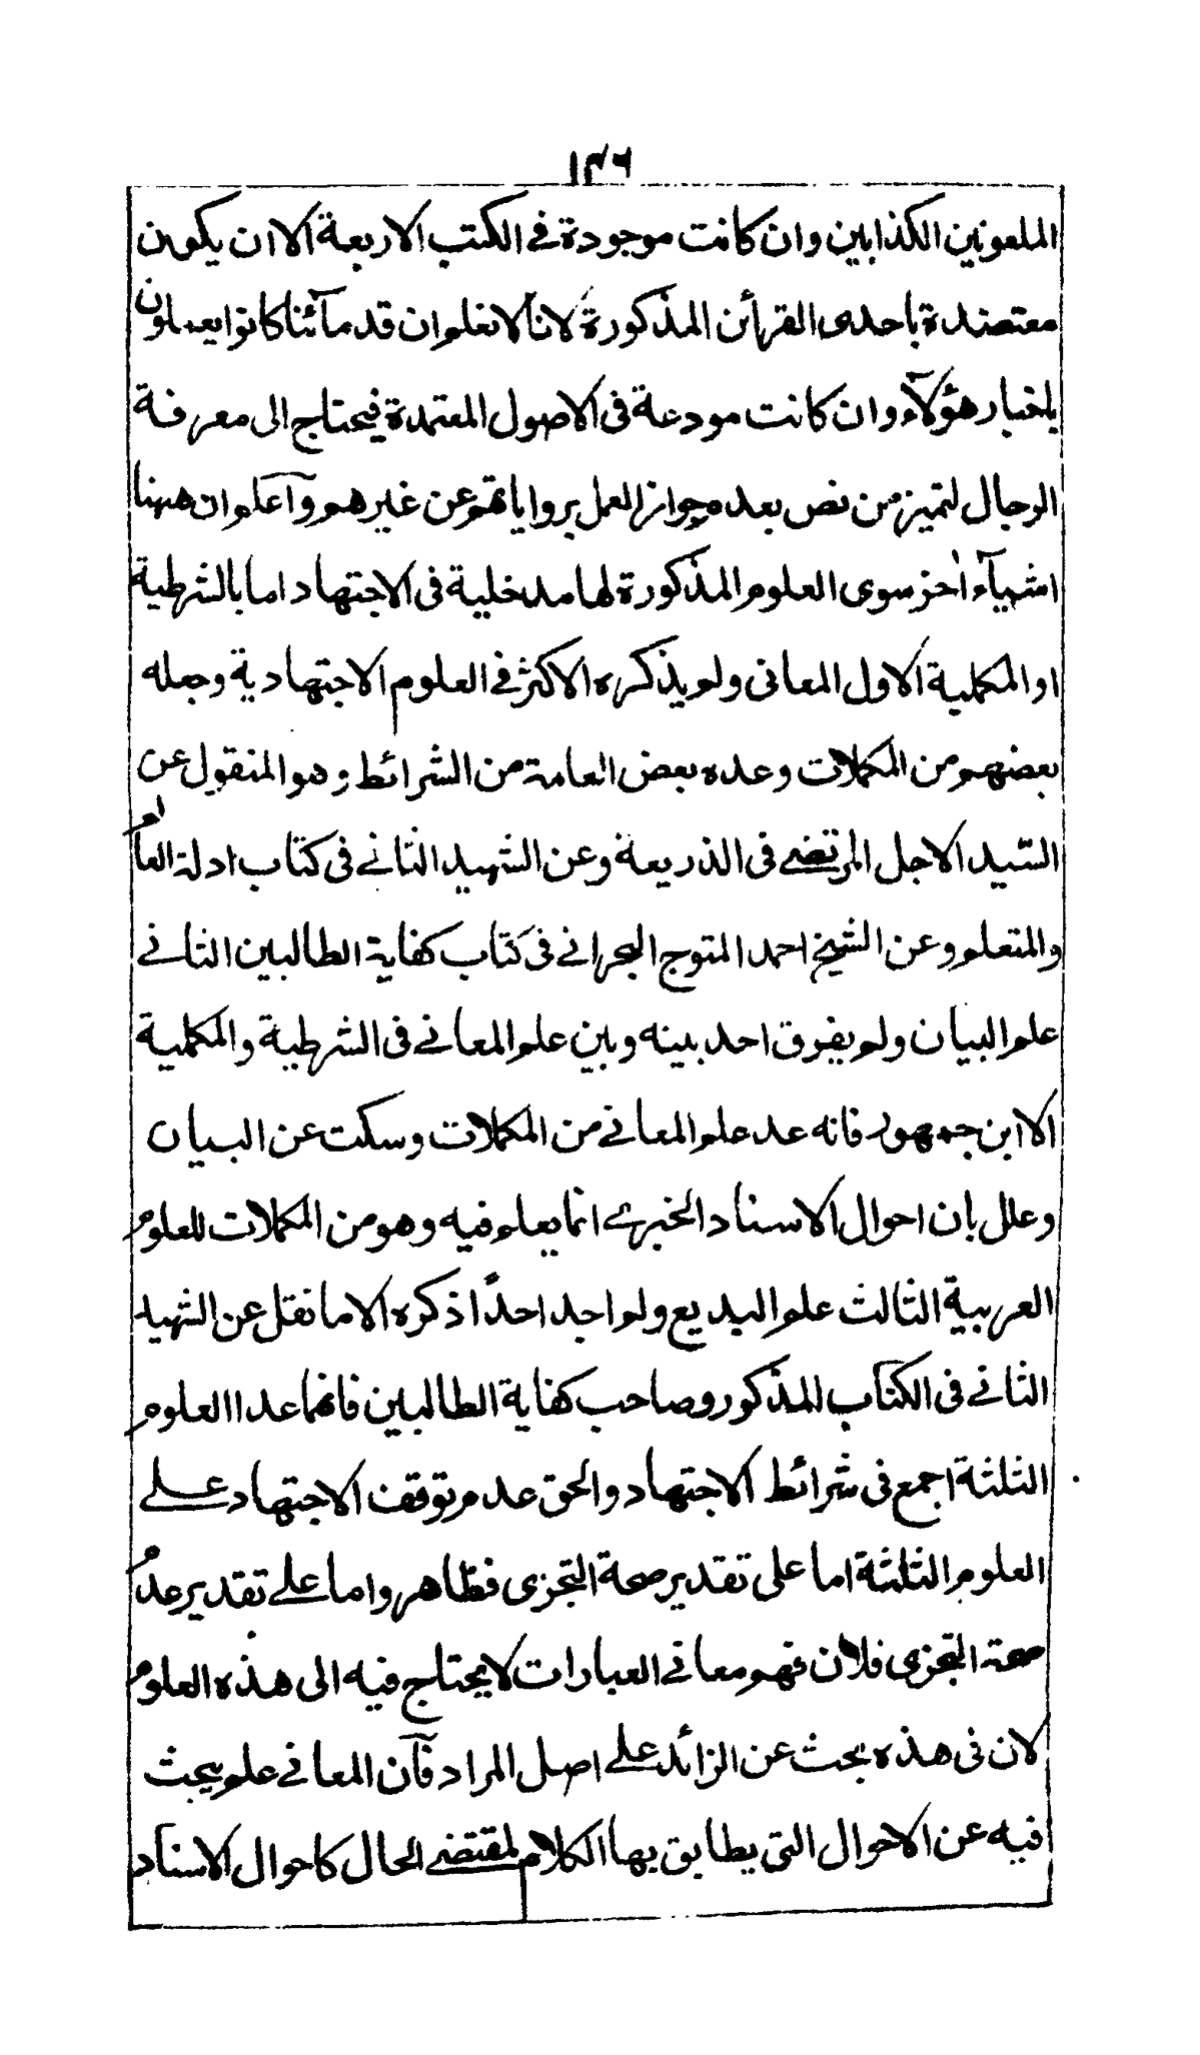 ١٣٦
الملعونين الكذابين وان كانت موجودة في الكتب الاربعة الا ان يكون
معتضدة باحدى القرائن المذكورة لانا لا نعلم ان قدمائنا كانوا يعملون
باخبار هؤلآء وان كانت مودعة فى الاصول المعتمدة فيحتاج الى معرفة
الرجال لتميز من نص بعدم جواز العمل برواياتهم عن غيرهم وآعلم ان ههنا
اشيآء اخر سوى العلوم المذكورة لها مدخلية فى الاجتهاد اما بالشرطية
او المكملية الاول المعانى ولم يذكره الاكثر في العلوم الاجتهادية وجعله
بعضهم من المكملات وعده بعض العامة من الشرائط وهو المنقول عن
السيد الاجل المرتضے فى الذريعة وعن الشهيد الثانے فى كتاب ادلة العالم
والمتعلم وعن الشيخ احمد المتوج البحرانے فى كتاب كفاية الطالبين الثانے
علم البيان ولم يفرق احد بينه وبين علم المعانے فى الشرطية والمكملية
الا ابن جمهور فانه عد علم المعانے من المكملات وسكت عن البيان
وعلل بان احوال الاسناد الخبرے انما يعلم فيه وهو من المكملات للعلوم
العربية الثالث علم البديع ولم اجد احدًا ذكره الا ما نقل عن الشهيد
الثانے فى الكتاب المذكور وصاحب كفاية الطالبين فانهما عدا العلوم
الثلثة اجمع فى شرائط الاجتهاد والحق عدم توقف الاجتهاد علے
العلوم الثلثة اما على تقدير صحة التجزى فظاهر واما علے تقدير عدم
صحة التجزى فلان فهم معانے العبارات لا يحتاج فيه الى هذه العلوم
لان فى هذه بحث عن الزائد علے اصل المراد فآن المعانے علم يبحث
فيه عن الاحوال التى يطابق بها الكلام لمقتضے الحال كاحوال الاسناد